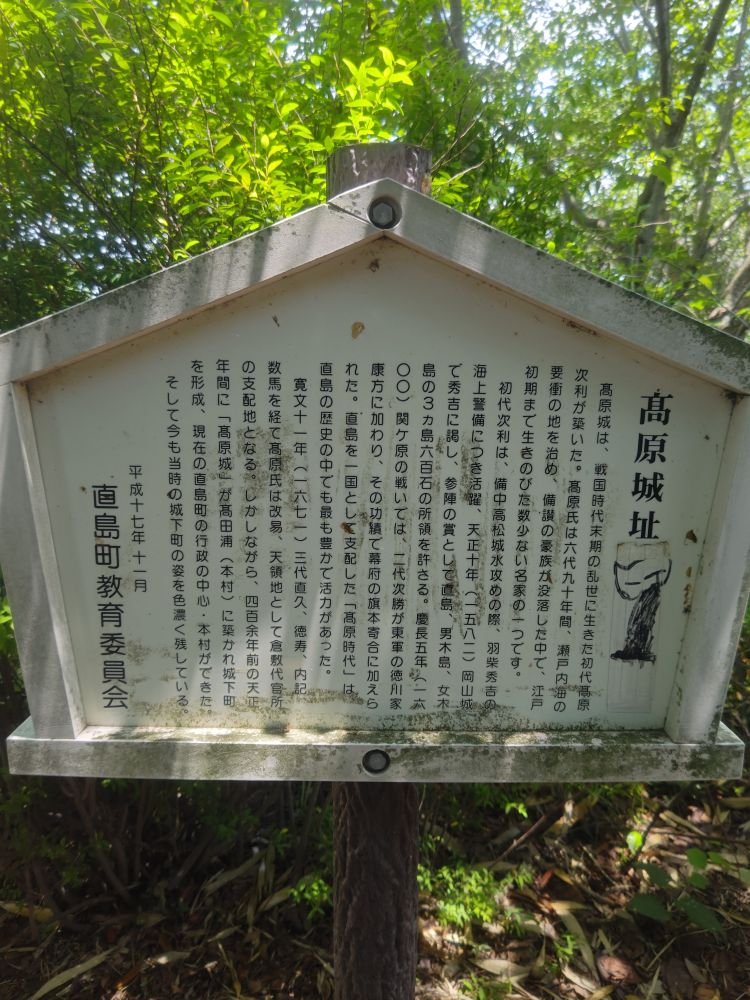 髙原城址
髙原城は、戦国時代末期の乱世に生きた初代髙原
次利が築いた。髙原氏は六代九十年間、瀬戸内海の
要衝の地を治め、備讃の豪族が没落した中で、江戸
初期まで生きのびた数少ない名家の一つです。
初代次利は、備中高松城水攻めの際、羽柴秀吉の
海上警備につき活躍、天正十年（一五八二）岡山城
で秀吉に謁し、参陣の賞として直島、男木島、女木
島の３ヵ島六百石の所領を許さる。慶長五年（一六
〇〇）関ケ原の戦いでは、二代次勝が東軍の徳川家
康方に加わり、その功績で幕府の旗本寄合に加えら
れた。直島を一国として支配した「髙原時代」は
直島の歴史の中でも最も豊かで活力があった。
寛文十一年（一六七一）三代直久、徳寿、内記
数馬を経て髙原氏は改易、天領地として倉敷代官所
の支配地となる。しかしながら、四百余年前の天正
年間に「髙原城」が髙田浦（本村）に築かれ城下町
を形成、現在の直島町の行政の中心・本村ができた。
そして今も当時の城下町の姿を色濃く残している。
平成十七年十一月
直島町教育委員会